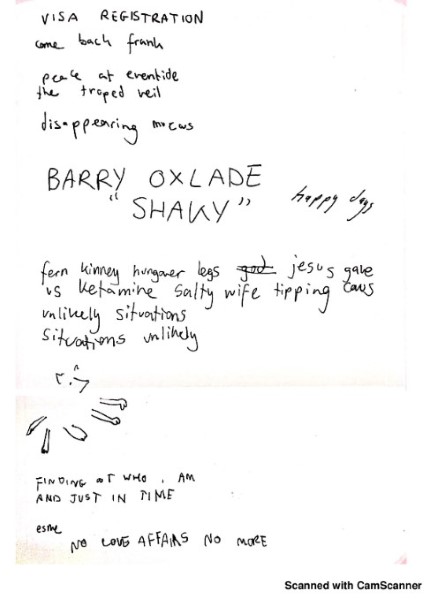 VISA REGISTRATION
come back frank
peace at eventide
the troped veil
disappearing mocus
BARRY OXLADE
"SHAKY"
happy days
fern kinney hungover legs god jesus gave
us ketamine salty wife tipping cows
unlikely situations
situations unlikely
FINDING OT WHO I AM
AND JUST IN TIME
esme
NO LOVE AFFAIRS NO MORE
Scanned with CamScanner